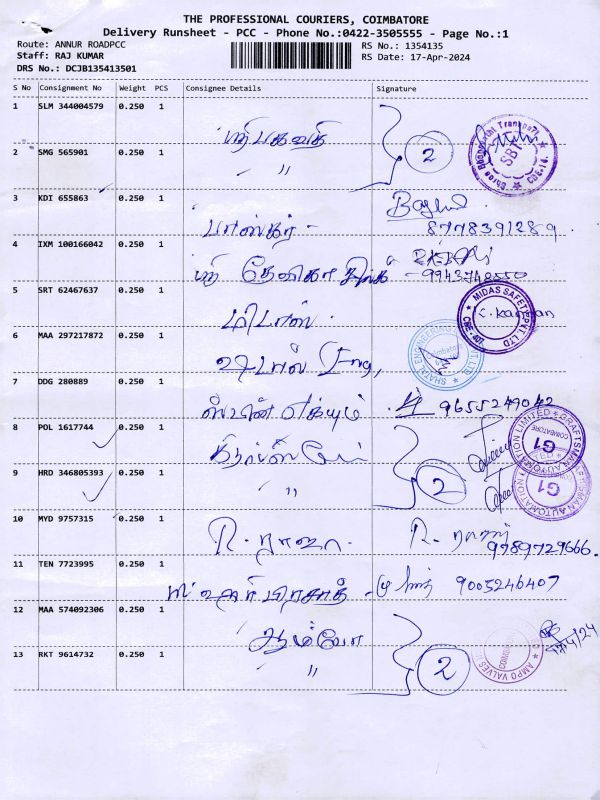 THE PROFESSIONAL COURIERS, COIMBATORE
Delivery Runsheet - PCC - Phone No.:0422-3505555 - Page No.:1
Route: ANNUR ROADPCC
RS No.: 1354135
Staff: RAJ KUMAR
RS Date: 17-Apr-2024
DRS No.: DCJB135413501
S No Consignment No Weight PCS Consignee Details Signature
1 SLM 344004579 0.250 1
ஸ்ரீ பகவதி
2 SMG 565901 0.250 1 " 2
Shree Bhagavathi Transport SBT CBE-14.
3 KDI 655863 0.250 1
பாஸ்கர் - 8778391289
4 IXM 100166042 0.250 1
ஸ்ரீ தேவிகா - 9943748550
5 SRT 62467637 0.250 1
மிடாஸ்.
MIDAS SAFETY PVT. LTD CBE-407
6 MAA 297217872 0.250 1
Eng,
Coimbatore
7 DDG 280889 0.250 1
9655249042
8 POL 1617744 0.250 1
CRAFTSMAN AUTOMATION LIMITED COIMBATORE G1
9 HRD 346805393 0.250 1 " 2
CRAFTSMAN AUTOMATION G1
10 MYD 9757315 0.250 1
R. ராஜா. R. ராஜா
9789729666.
11 TEN 7723995 0.250 1
பிரசாத் - 9005246407
12 MAA 574092306 0.250 1
17/4/24
13 RKT 9614732 0.250 1 " 2
AMPO VALVES